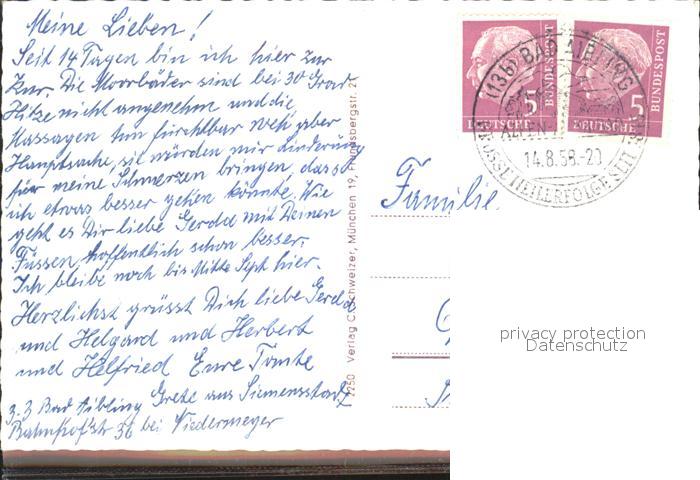 Meine Lieben!
Seit 14 Tagen bin ich hier zur
Kur. Die Moorbäder sind bei 30 Grad
Hitze nicht angenehm und die
Massagen tun fürchtbar weh aber
Hauptsache, sie würden mir Linderung
für meine Schmerzen bringen, das
ich etwas besser gehen könnte. Wie
geht es Dir liebe Gerda mit Deinen
Füssen, hoffentlich schon besser.
Ich bleibe noch bis Mitte Sept hier.
Herzlichst grüsst Dich liebe Gerda
und Helgard und Herbert
und Helfried Eure Tante
Grete aus Siemensstadt
z. Z Bad Aibling
Bahnhofstr 36 bei Niedermeyer
2250 Verlag C. Schweizer, München 19, Frundsbergstr. 2
Familie
5
DEUTSCHE
BUNDESPOST
5
DEUTSCHE
BUNDESPOST
(13b) BAD AIBLING
14.8.58.-20
GROSSE HEILERFOLGE
privacy protection
Datenschutz